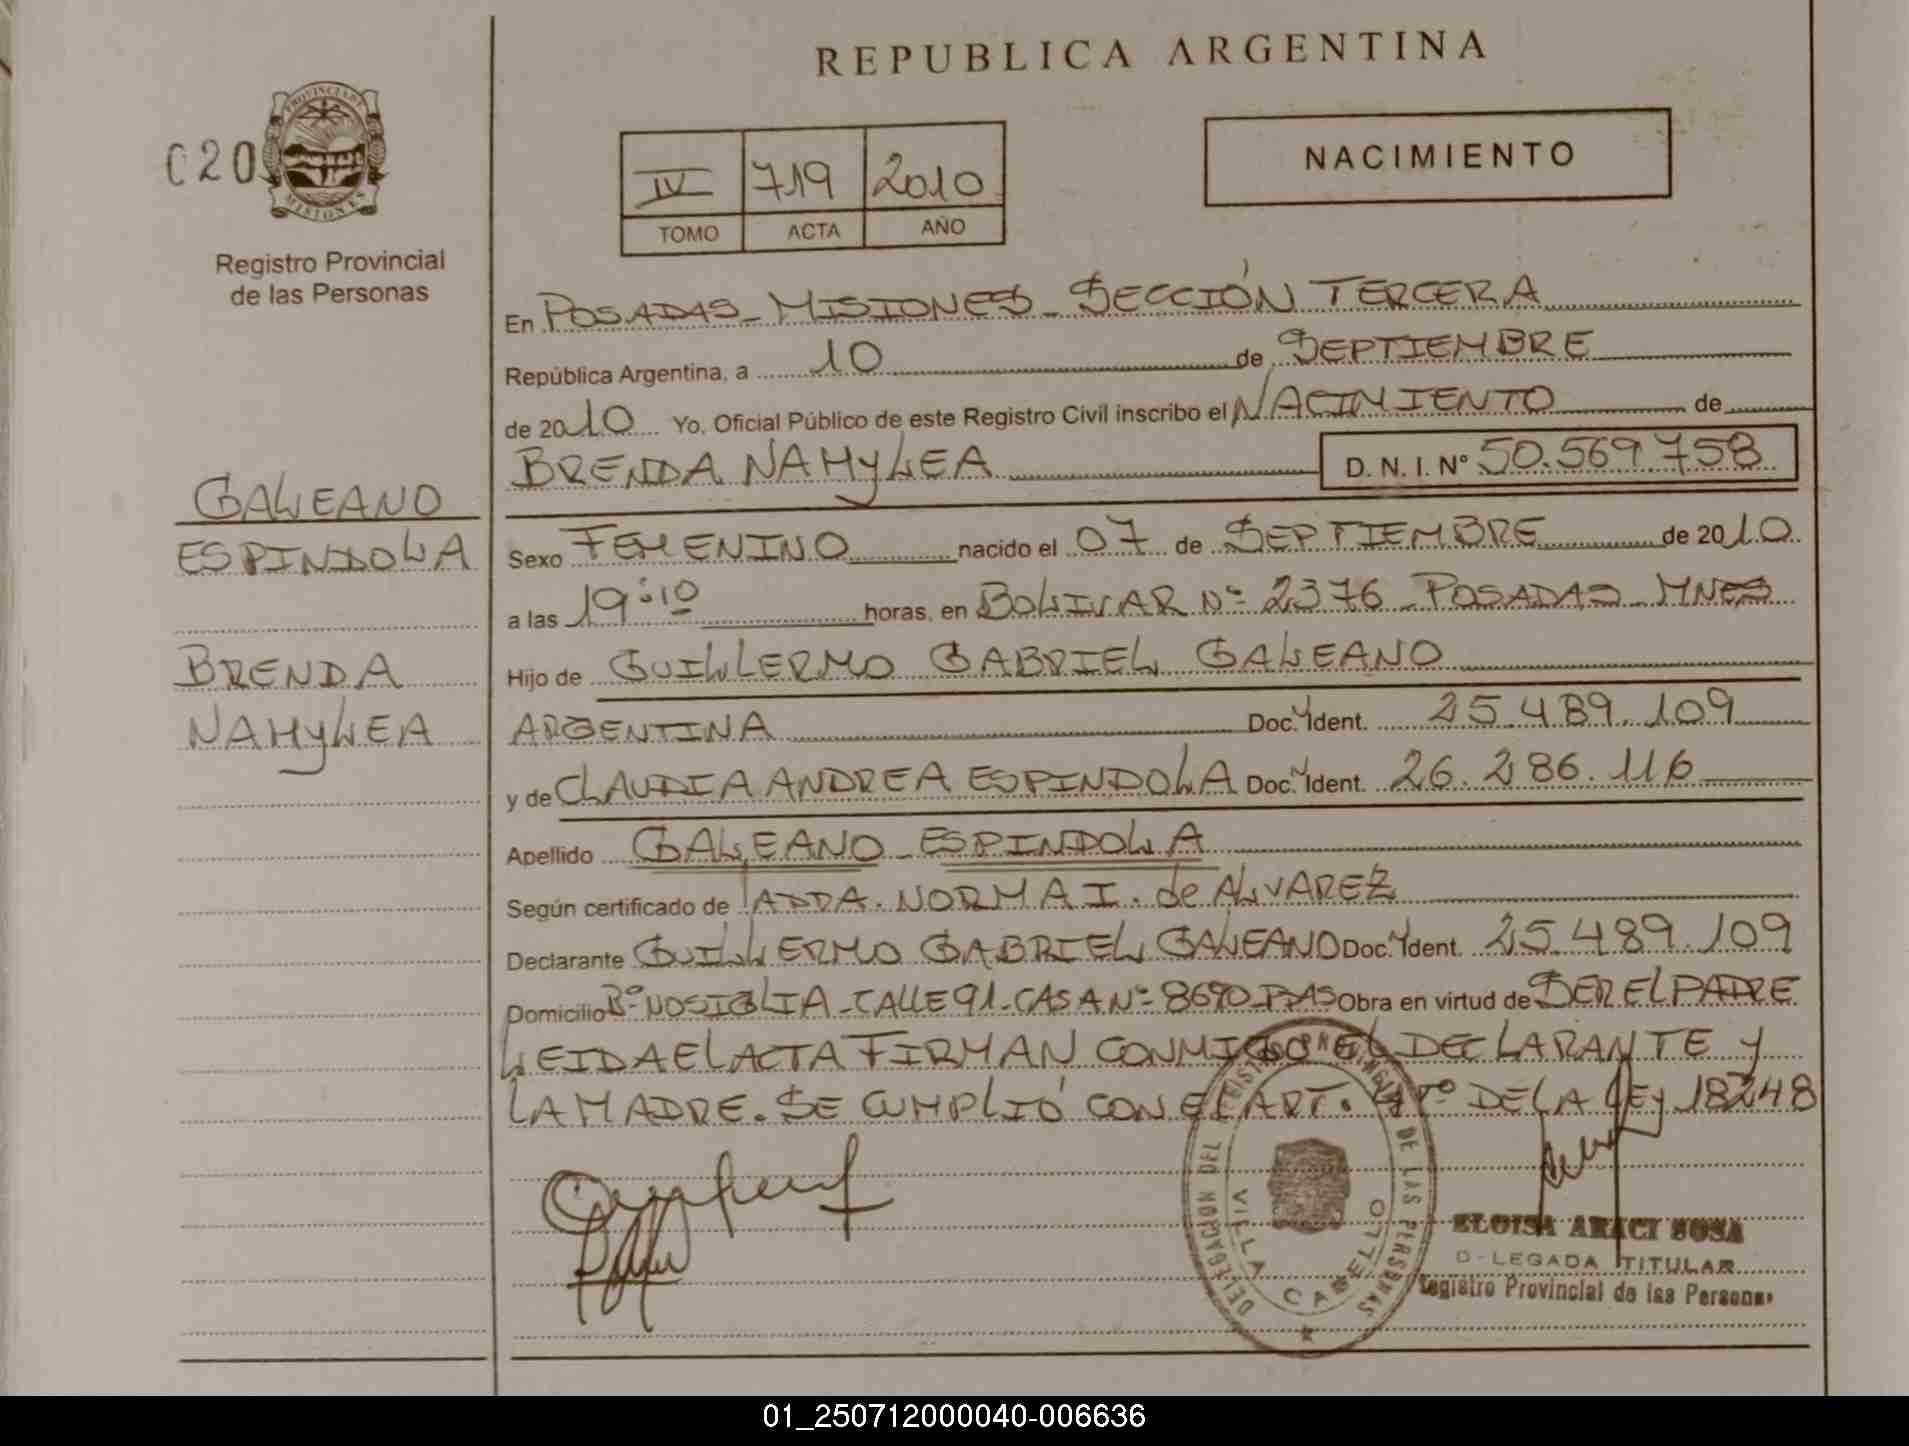 REPUBLICA ARGENTINA
020
PROVINCIA DE
MISIONES
Registro Provincial
de las Personas
IV 719 2010
TOMO ACTA AÑO
NACIMIENTO
En POSADAS - MISIONES - SECCIÓN TERCERA
República Argentina, a 10 de SEPTIEMBRE
de 2010 Yo, Oficial Público de este Registro Civil inscribo el NACIMIENTO de
BRENDA NAHYLEA D. N. I. Nº 50.569.758
GALEANO
ESPINDOLA
BRENDA
NAHYLEA
Sexo FEMENINO nacido el 07 de SEPTIEMBRE de 2010
a las 19:10 horas, en BOLIVAR Nº 2376 - POSADAS - MNES
Hijo de GUILLERMO GABRIEL GALEANO
ARGENTINA Doc. Ident. 25.489.109
y de CLAUDIA ANDREA ESPINDOLA Doc. Ident. 26.286.116
Apellido GALEANO - ESPINDOLA
Según certificado de NORMA I. de ALVAREZ
Declarante GUILLERMO GABRIEL GALEANO Doc. Ident. 25.489.109
Domicilio Bº NOSIGLIA - CALLE 91 - CASA Nº 8690 - PDAS Obra en virtud de SER EL PADRE
LEIDA EL ACTA FIRMAN CONMIGO EL DECLARANTE Y
LA MADRE. SE CUMPLIÓ CON EL ART. DE LA LEY 18248
DELEGACION DEL REGISTRO PROVINCIAL DE LAS PERSONAS
VILLA CABELLO
ELOISA ARACI SOSA
D-LEGADA TITULAR
Registro Provincial de las Personas
01_250712000040-006636